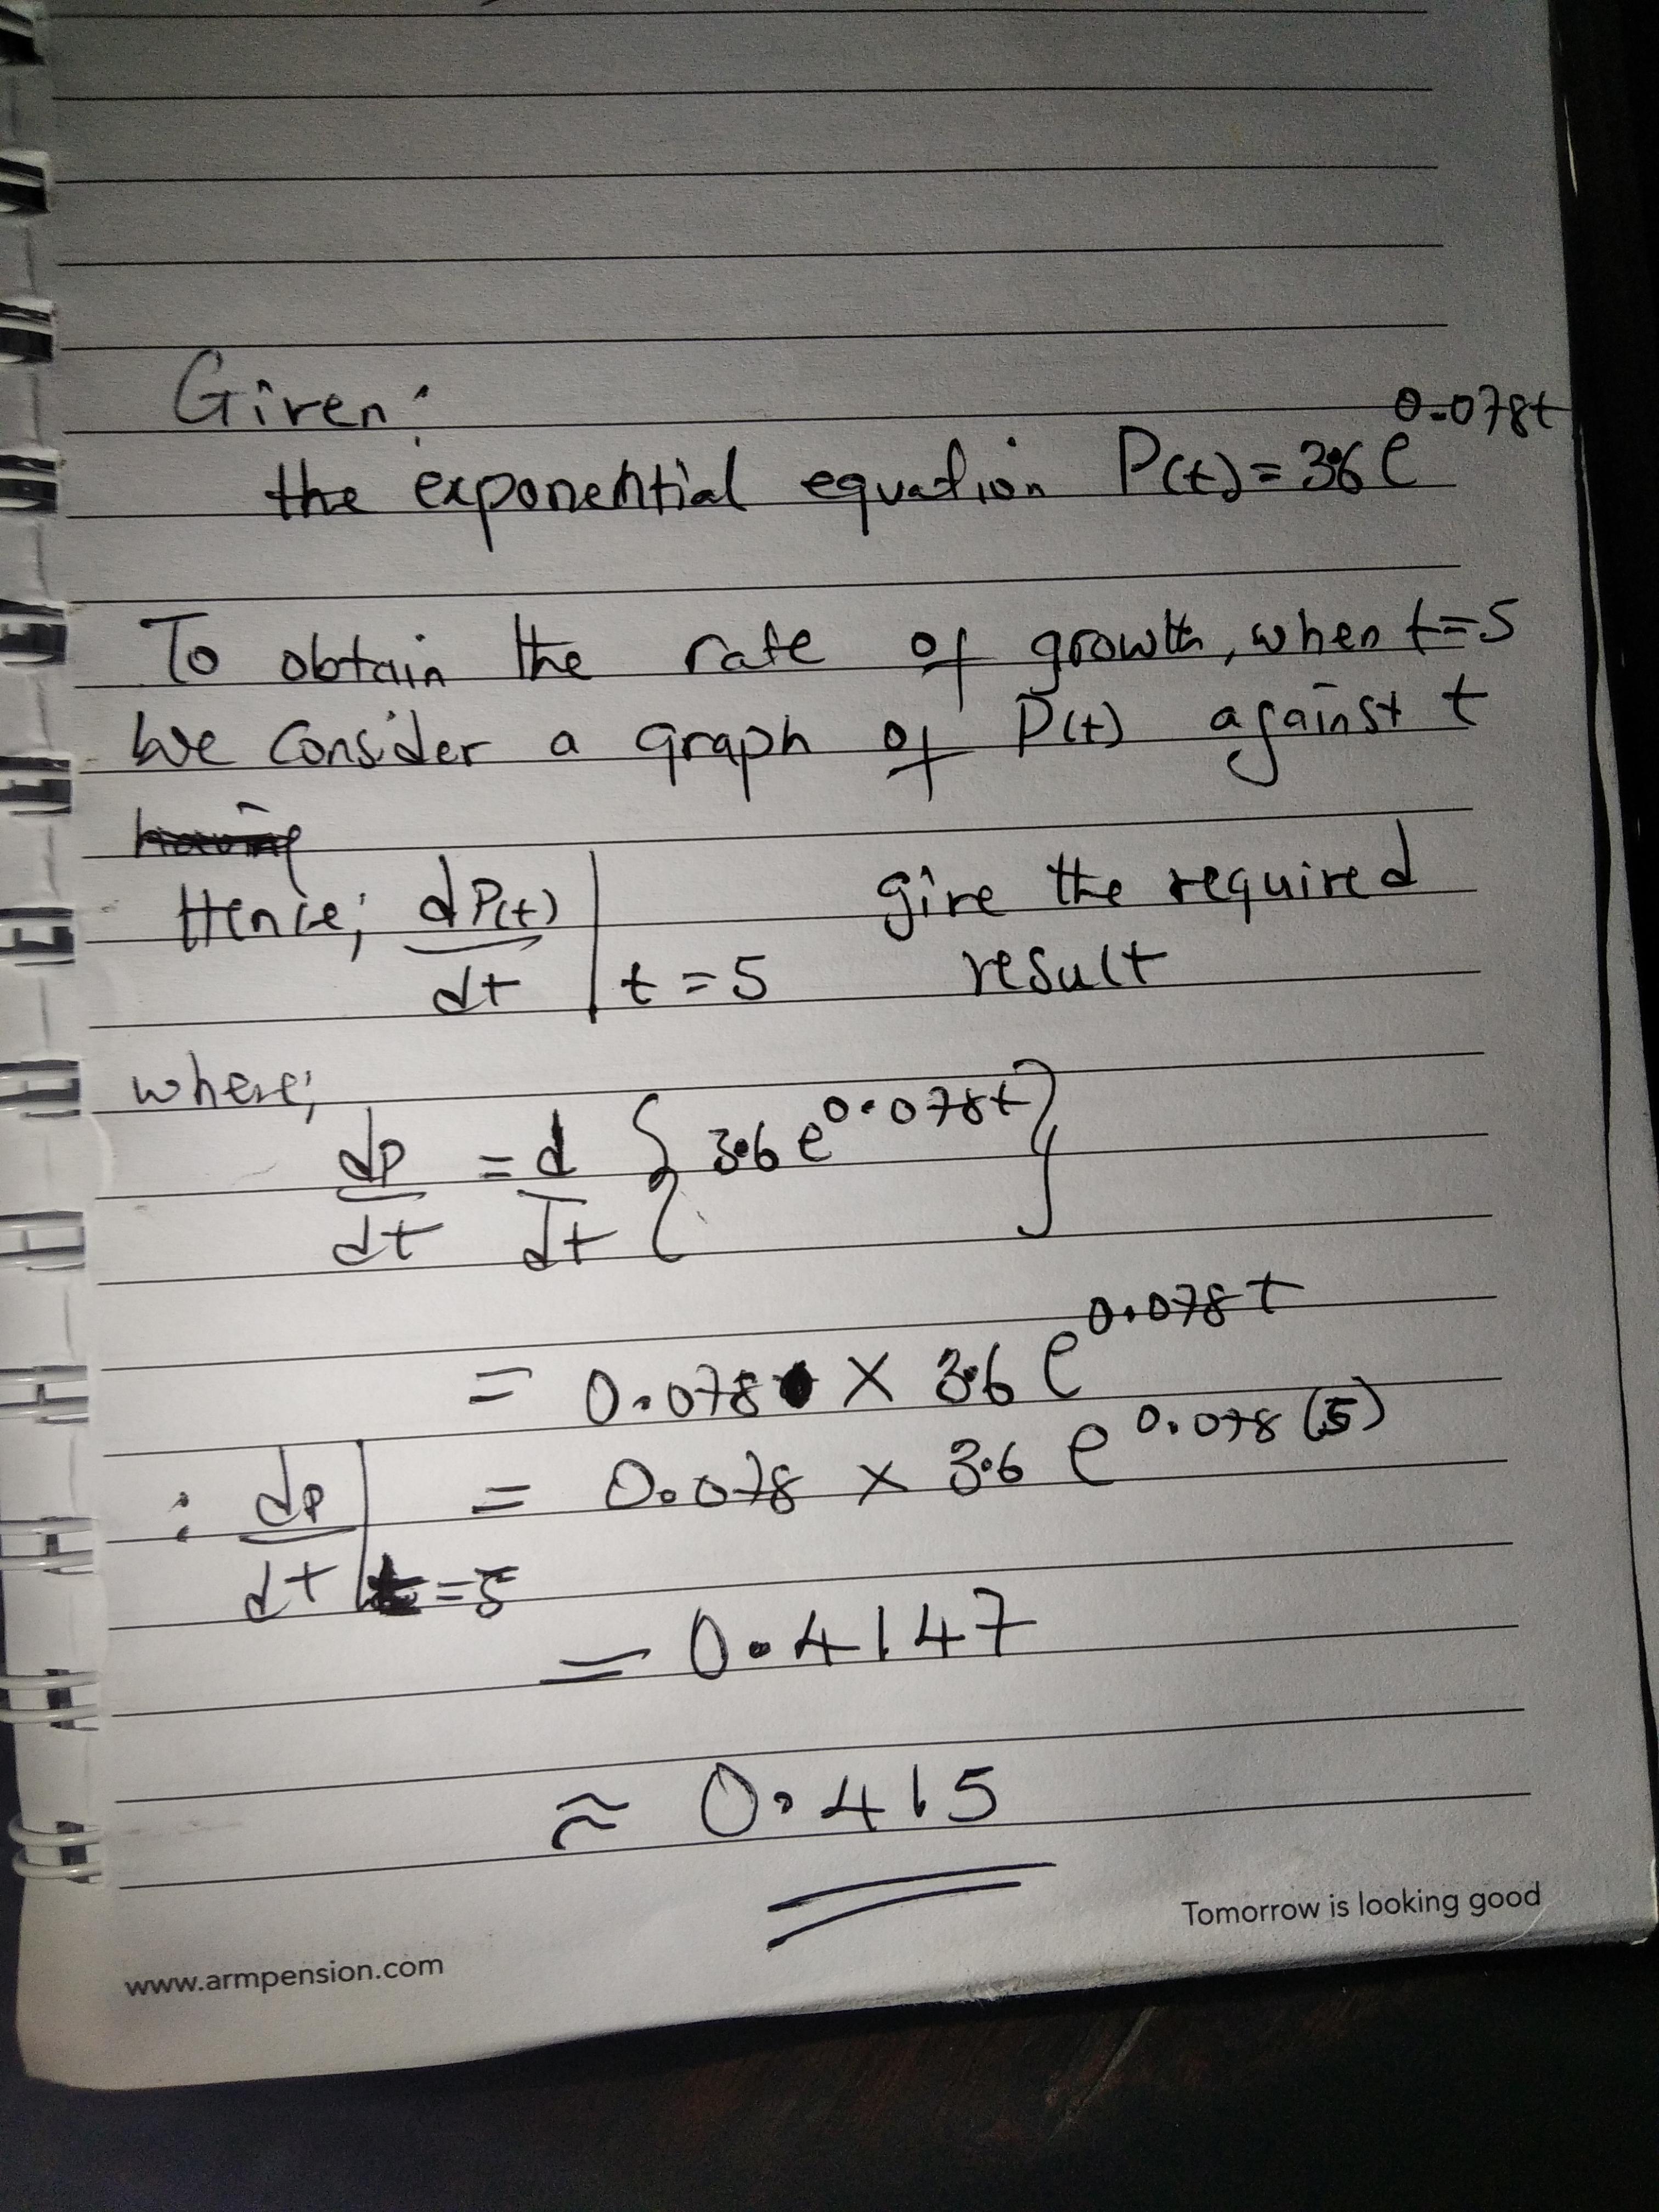 Given:
the exponential equation P(t) = 3.6 e^0.078t
To obtain the rate of growth, when t=5
We consider a graph of P(t) against t
having
Hence; dP(t)/dt | t = 5 give the required
result
where;
dp/dt = d/dt { 3.6 e^0.078t }
= 0.078 × 3.6 e^0.078t
: dp/dt | t=5 = 0.078 × 3.6 e^0.078(5)
= 0.4147
≈ 0.415
Tomorrow is looking good
www.armpension.com